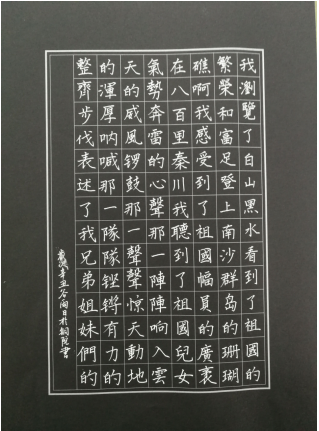 我瀏覽了白山黑水看到了祖國的
繁榮和富足登上南沙群岛的珊瑚
礁啊我感受到了祖國幅員的廣袤
在八百里秦川我聽到了祖國兒女
氣勢奔雷的心聲那一陣陣响入雲
天的威風锣鼓那一聲聲惊天動地
的渾厚呐喊那一隊隊铿锵有力的
整齊步伐表述了我兄弟姐妹們的